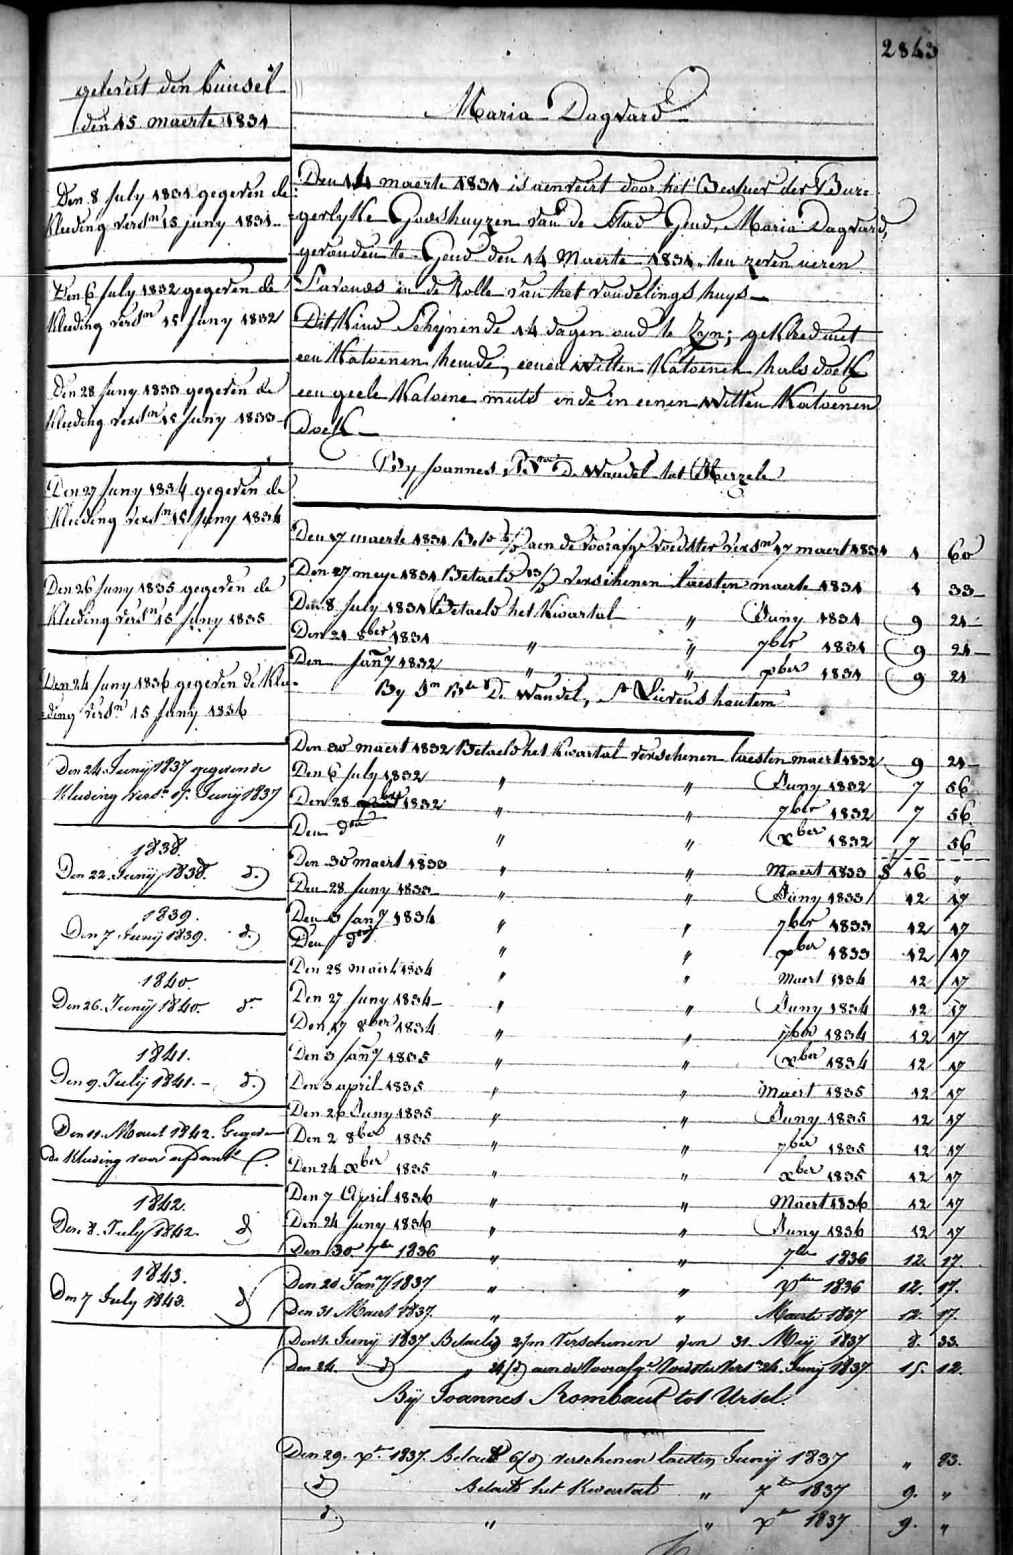 2843
gelevert den Bunsel
den 15 maerte 1831
Den 8 July 1831 gegeven de
Kleeding versn 15 juny 1831
Den 6 July 1832 gegeven de
Kleeding versn 15 Juny 1832
Den 28 Juny 1833 gegeven de
Kleeding versn 15 Juny 1833
Den 27 Juny 1834 gegeven de
Kleeding versn 15 Juny 1834
Den 26 Juny 1835 gegeven de
Kleeding versn 15 Juny 1835
Den 24 Juny 1836 gegeven de Klee-
ding versn 15 Juny 1836
Den 24 Junij 1837 gegeven de
Kleeding versn 15 Junij 1837
1838.
Den 22. Junij 1838. d.)
1839.
Den 7 Junij 1839. d.)
1840.
Den 26. Junij 1840. d.
1841.
Den 9. Julij 1841. - d.)
Den 11. Maert 1842. Gegeven
de Kleeding voor
1842.
Den 8. July 1842. d
1843.
Den 7 July 1843. d)
Maria Dagvard
Den 14 maerte 1831 is aenveirt door het Bestuer der Bur-
gerlyke Godshuyzen van de Stad Gend, Maria Dagvard,
gevonden te Gend den 14 Maerte 1831, ten zeven ueren
s'avonds in de Rolle van het vondelingshuys
Dit Kind Schynende 14 dagen oud te Zyn; gekleed met
een Katoenen hemde, eenen witten Katoenen halsdoek
een geele Katoene muts ende in eenen witten Katoenen
Doek
By Joannes Bte De Wandel tot Herzele
Den 17 maerte 1831 aen de voorafge voedster versn 17 maert 1831 1 60
Den 27 meye 1831 Betaeld verschenen laesten maerte 1831 1 33
Den 8 July 1831 Betaeld het Kwartal " Juny 1831 9 21
Den 21 8ber 1831 " " 7ber 1831 9 21
Den Jany 1832 " " xber 1831 9 21
By Jn Bte De Wandel, St Lievens houtem
Den 30 maert 1832 Betaeld het Kwartal verschenen laesten maert 1832 9 21
Den 6 July 1832 " " Juny 1832 7 56
Den 28 1832 " " 7ber 1832 7 56
Den dn " " xber 1832 7 56
Den 30 maert 1833 " " Maert 1833 8 16 "
Den 28 Juny 1833 " " Juny 1833 12 17
Den 3 Jany 1834 " " 7ber 1833 12 17
Den dn " " xber 1833 12 17
Den 28 maert 1834 " " Maert 1834 12 17
Den 27 Juny 1834 " " Juny 1834 12 17
Den 17 8ber 1834 " " 7ber 1834 12 17
Den 3 Jany 1835 " " xber 1834 12 17
Den 3 april 1835 " " Maert 1835 12 17
Den 26 Juny 1835 " " Juny 1835 12 17
Den 2 8ber 1835 " " 7ber 1835 12 17
Den 24 xber 1835 " " xber 1835 12 17
Den 7 April 1836 " " Maert 1836 12 17
Den 24 Juny 1836 " " Juny 1836 12 17
Den 30 7ber 1836 " " 7ber 1836 12. 17.
Den 20 Jany 1837 " " xber 1836 12. 17.
Den 31 Maert 1837 " " Maerte 1837 12. 17.
Den 1. Junij 1837 Betaeld 2/m Verschenen den 31. Meij 1837 8. 33.
Den 24. d) " 24/d) aen de Voorafge Voedster Versn 24. Junij 1837 15. 12.
Bij Joannes Rombaut tot Ursel.
Den 29. xr 1837. Betaelt 6/d) verschenen laesten Junij 1837 " 93.
d) Betaelt het Kwartal " 7r 1837 9. "
d.) " " xr 1837 9. "